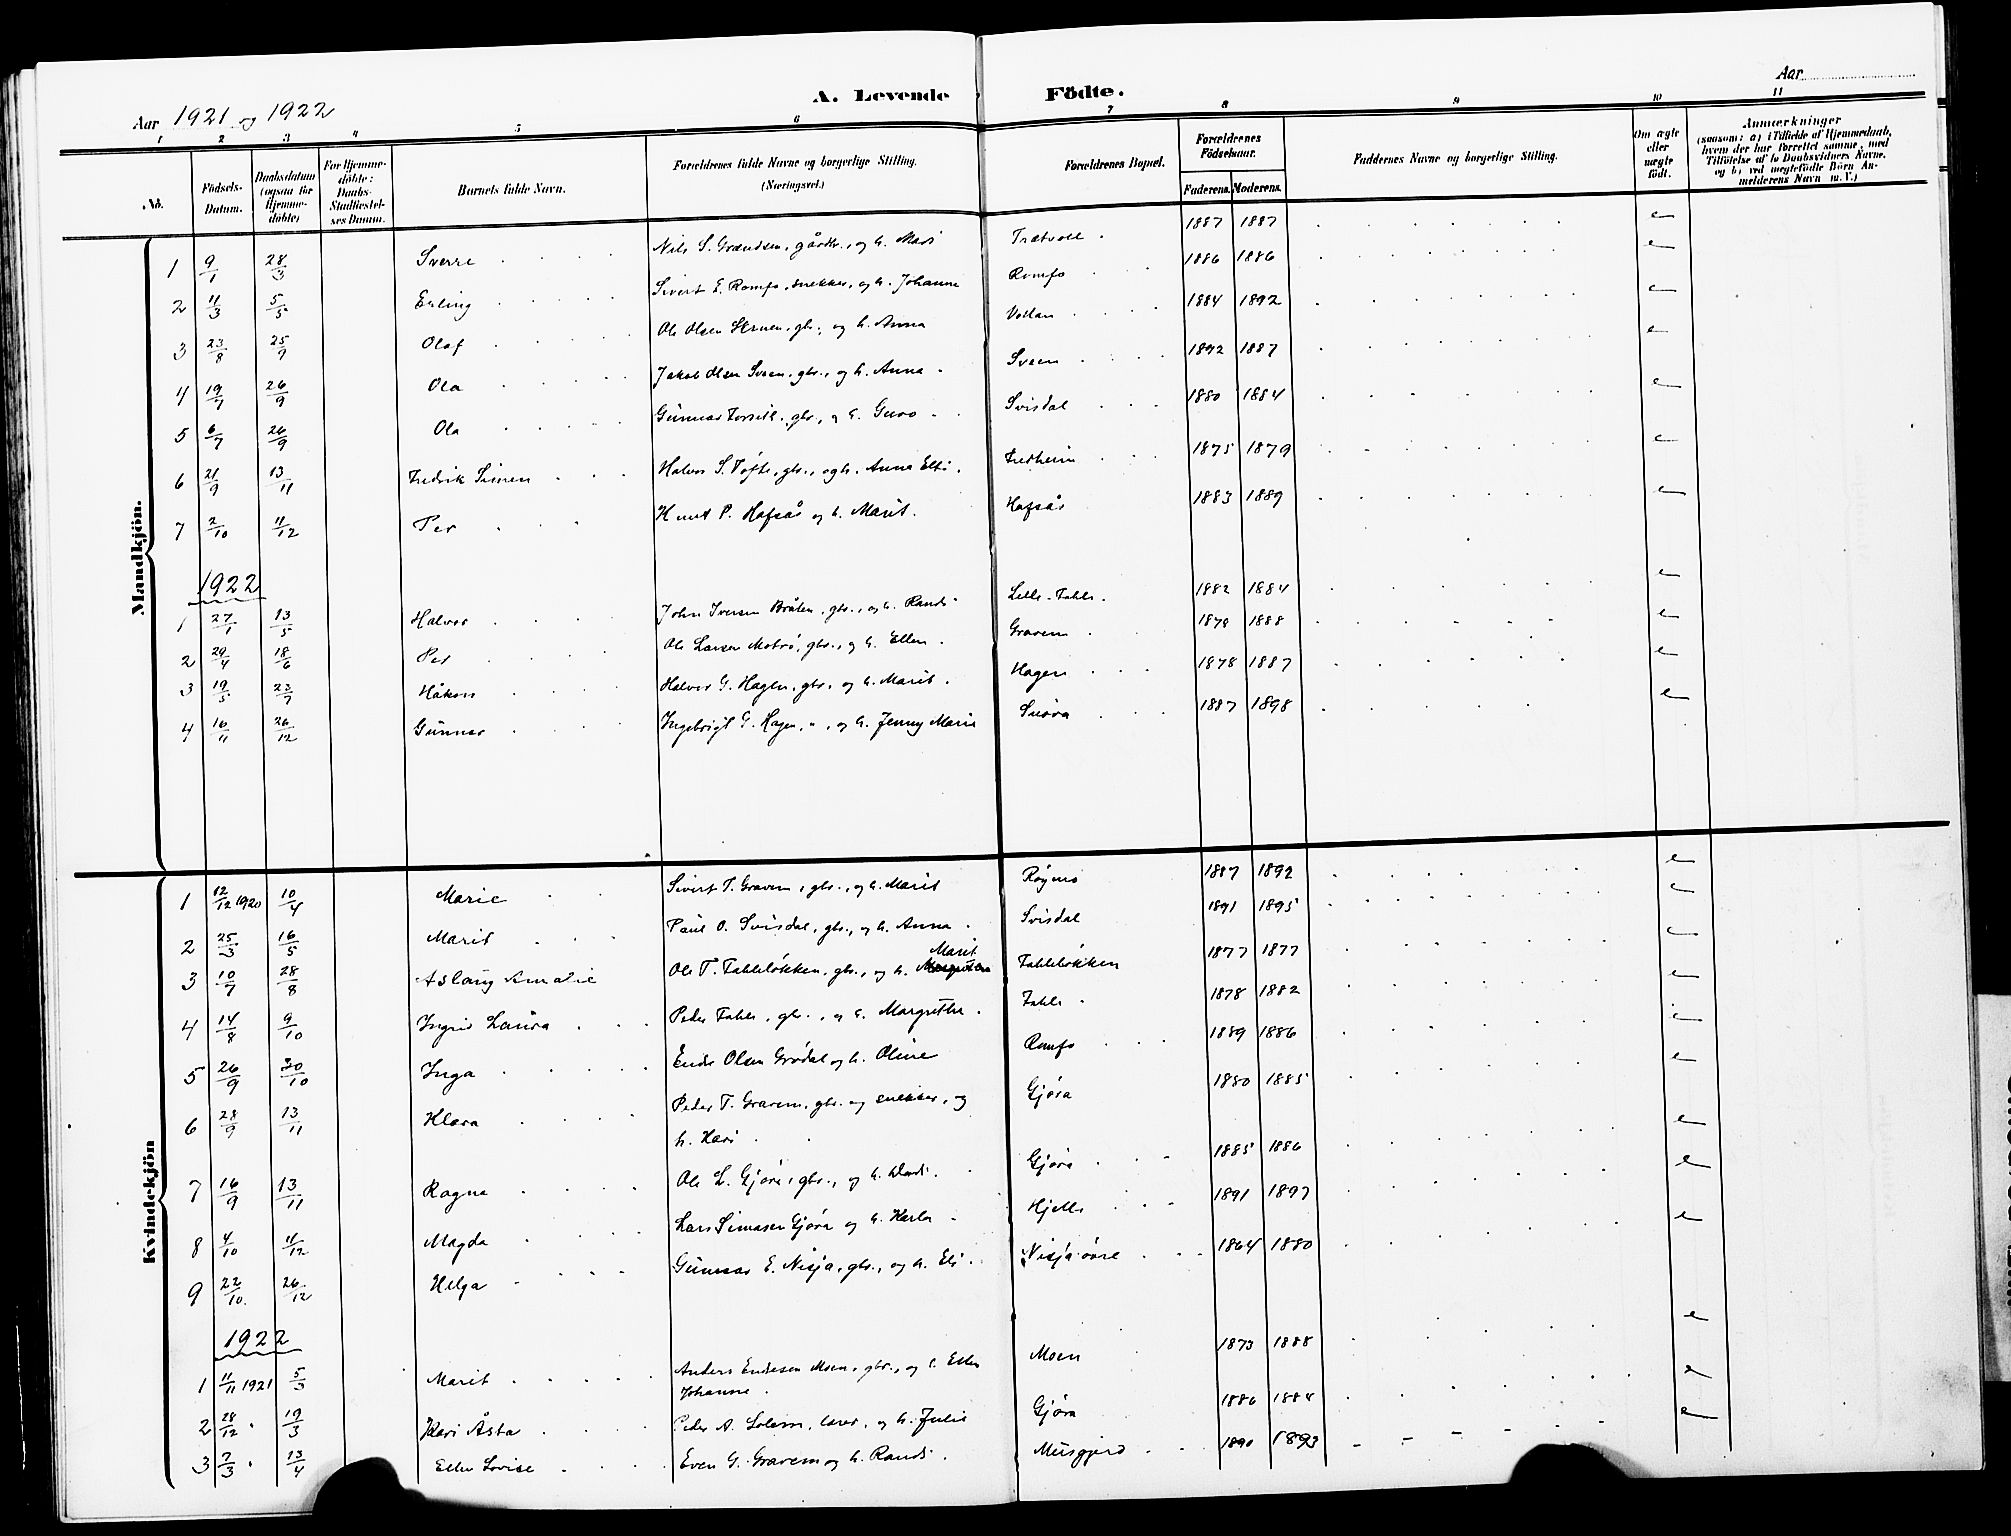 Aar 1921 og 1922
A. Levende Födte.
Aar
1 2 3 4 5 6 7 8 9 10 11
No.
Födsels-Datum.
Daabsdatum (ogsaa for Hjemmedöbte)
For Hjemmedöbte: Daabs-Stadfæstelses Datum.
Barnets fulde Navn.
Forældrenes fulde Navne og borgerlige Stilling. (Næringsvei.)
Forældrenes Bopæl.
Forældrenes Födselsaar.
Faderens. Moderens.
Faddernes Navne og borgerlige Stilling.
Om ægte eller uægte födt.
Anmærkninger
(saasom: a) i Tilfælde af Hjemmedaab, hvem der har forrettet samme, med Tilföielse af to Daabsvidners Navne, og b) ved uægtefödte Börn Anmelderens Navn m. V.)
Mandkjön.
1 9/1 28/3 Sverre Nils S. Grændsen, gårdbr., og h. Mari Trætvoll 1887 1887 e
2 11/3 5/5 Erling Sivert E. Romfo, snekker, og h. Johanne Romfo 1886 1886 e
3 23/8 25/9 Olaf Ole Olsen gbr., og h. Anna Vollan 1884 1892 e
4 19/7 26/9 Ola Jakob Olsen Svøen, gbr., og h. Anna Svøen 1892 1887 e
5 6/7 26/9 Ola Gunnar gbr., og h. Guro Svisdal 1880 1884 e
6 21/9 13/11 Fredrik Simen Halvor S. Tøfte, gbr., og h. Anna Eli Fredheim 1875 1879 e
7 2/10 11/12 Per Knut P. Hafsås og h. Marit. Hafsås 1883 1889 e
1922
1 27/1 13/5 Halvor John Iversen Bråten, gbr., og h. Randi Lille-Fahle. 1882 1884 e
2 29/4 18/6 Per Ole Larsen gbr., og h. Ellen Gravem 1879 1888 e
3 19/5 23/7 Håkon Halvor G. Hagen, gbr., og h. Marit. Hagen 1878 1887 e
4 16/11 26/12 Gunnar Ingebrigt G. Hagen, ", og h. Jenny Marie Snøva 1887 1898 e
Kvindekjön
1 12/12 1920 10/4 Marie Sivert T. Gravem, gbr., og h. Marit Røymo 1887 1892 e
2 25/3 16/5 Marit Paul O. Svisdal, gbr., og h. Anna Svisdal 1891 1895 e
Marit
3 10/7 28/8 Aslaug Amalie Ole T. Fahleløkken, gbr., og h. Fahleløkken 1877 1877 e
4 14/8 9/10 Ingrid Laura Peder Fahle, gbr., og h. Margrethe Fahle 1878 1882 e
5 26/9 30/10 Inga Endre Olsen Grødal og h. Oline Romfo 1889 1886 e
6 28/9 13/11 Klara Peder T. Gravem, gbr. og snekker, og Gjøra 1880 1885 e
h. Kari
7 16/9 13/11 Ragna Ole L. Gjøra, gbr., og h. Gjøra 1885 1886 e
8 4/10 11/12 Magda Lars Simasen Gjøra og h. Hjelle 1891 1897 e
9 22/10. 26/12 Helga Gunnar E. Nisja, gbr., og h. Eli Nisja øvre 1864 1880 e
1922
1 11/11 1921 5/3 Marit Anders Endresen Moen, gbr., og h. Ellen Moen 1873 1888 e
Johanne.
2 28/12 " 19/3 Kari Åsta Peder A. Solem, lærer, og h. Julie Gjøra 1886 1884 e
3 7/3 " 13/4 Ellen Lovise Even G. Gravem og h. Randi Musgjerd 1890 1893 e